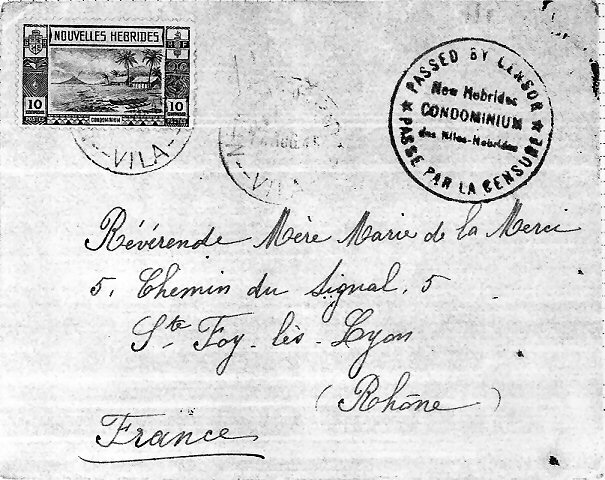 NOUVELLES HEBRIDES
R F
10 10
POSTES CONDOMINIUM
VILA
VILA
PASSED BY CENSOR
New Hebrides
CONDOMINIUM
des Nlles-Hebrides
PASSE PAR LA CENSURE
Révérende Mère Marie de la Merci
5, Chemin du Signal, 5
Ste Foy-lès-Lyon
(Rhône)
France